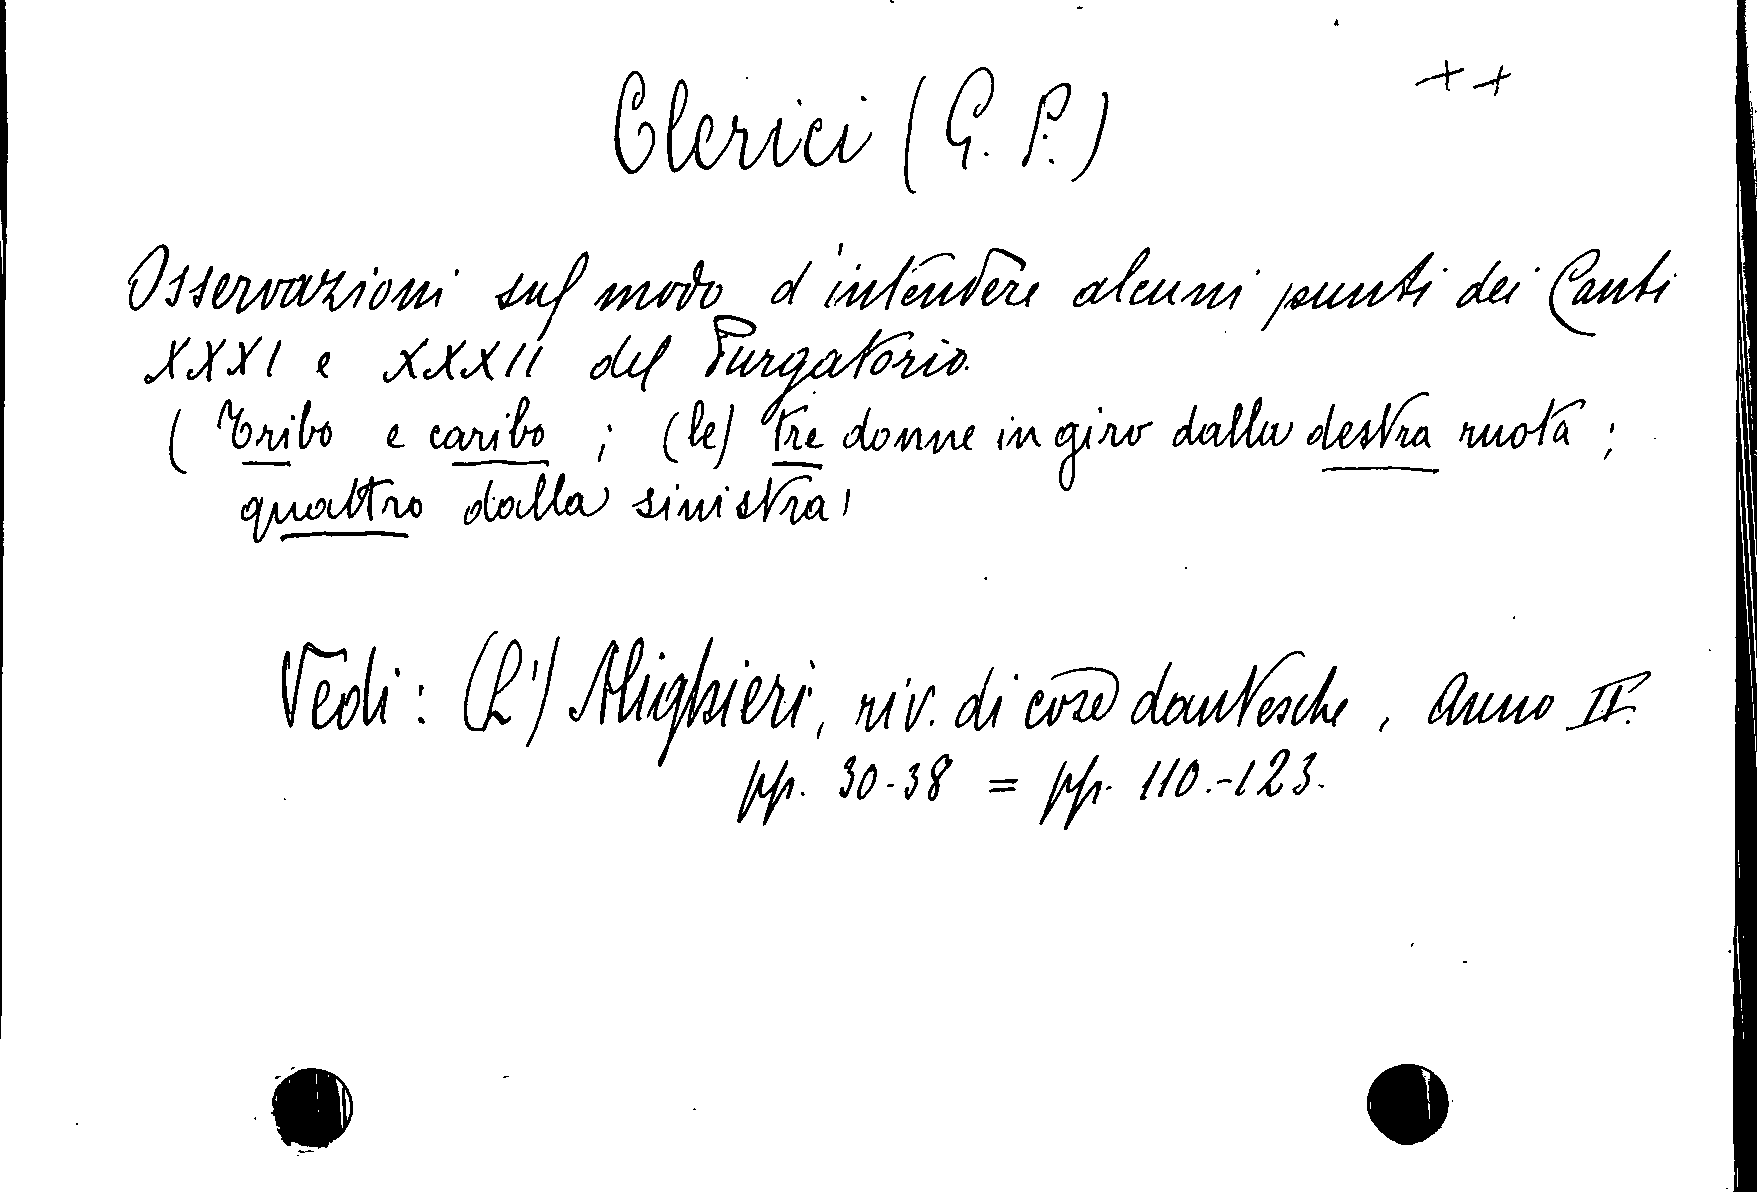 ++
Clerici (G. P.)
Osservazioni sul modo d'intendere alcuni punti dei Canti
XXXI e XXXII del Purgatorio.
( Tribo e caribo ; (le) tre donne in giro dalla destra ruota ;
quattro dalla sinistra)
Vedi : (L') Alighieri, riv. di cose dantesche, Anno II.
pp. 30-38 = pp. 110.-123.